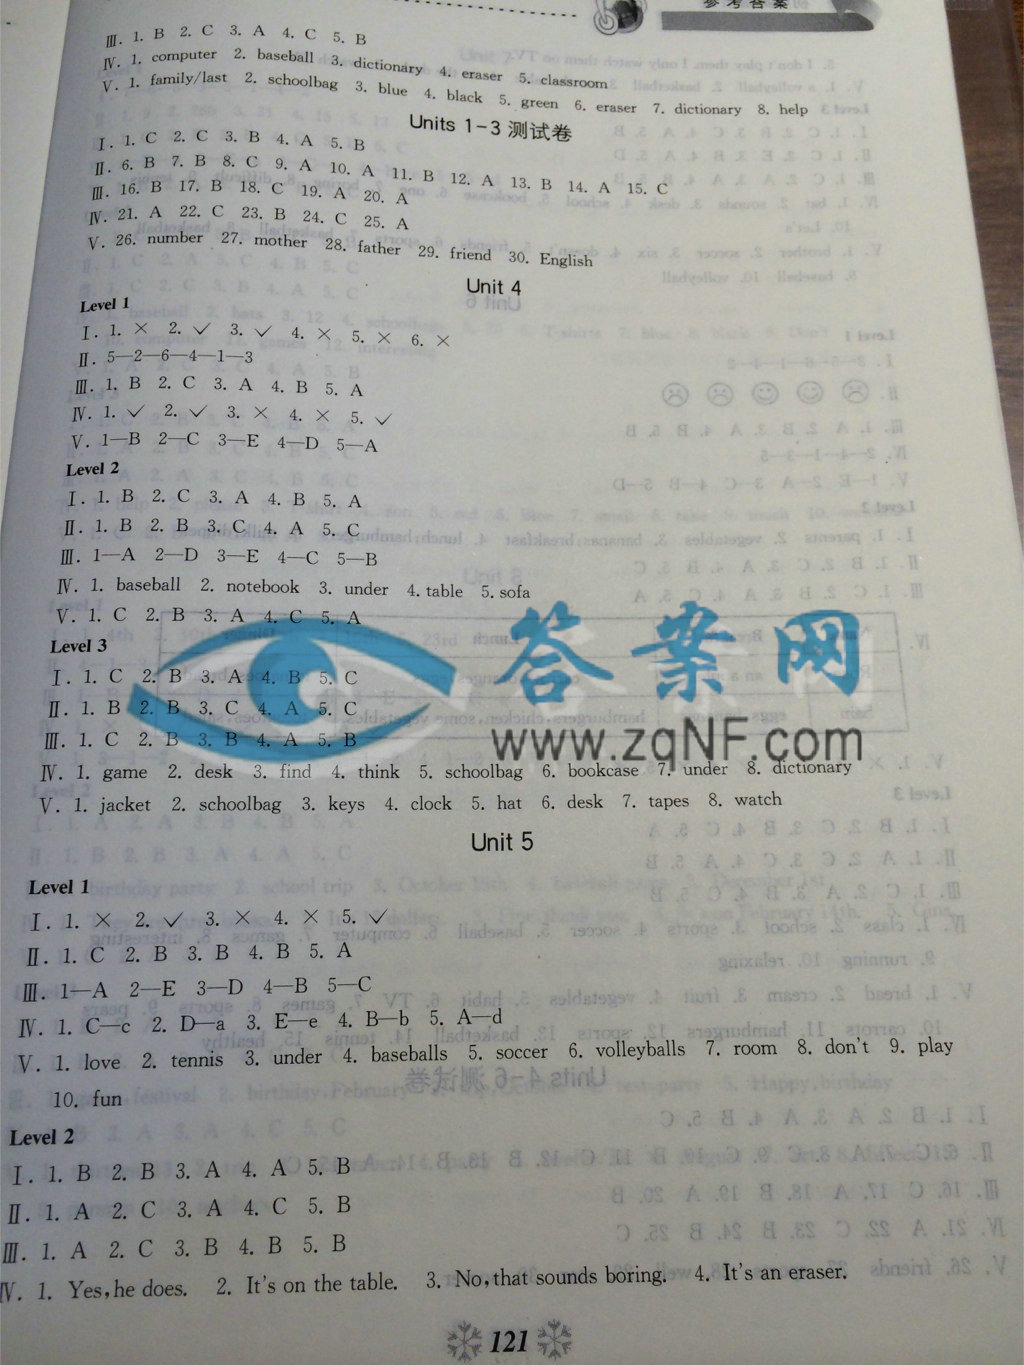 参考答案
Ⅲ. 1. B 2. C 3. A 4. C 5. B
Ⅳ. 1. computer 2. baseball 3. dictionary 4. eraser 5. classroom
Ⅴ. 1. family/last 2. schoolbag 3. blue 4. black 5. green 6. eraser 7. dictionary 8. help
Units 1-3 测试卷
Ⅰ. 1. C 2. C 3. B 4. A 5. B
Ⅱ. 6. B 7. B 8. C 9. A 10. A 11. B 12. A 13. B 14. A 15. C
Ⅲ. 16. B 17. B 18. C 19. A 20. A
Ⅳ. 21. A 22. C 23. B 24. C 25. A
Ⅴ. 26. number 27. mother 28. father 29. friend 30. English
Unit 4
Level 1
Ⅰ. 1. × 2. ✓ 3. ✓ 4. × 5. × 6. ×
Ⅱ. 5—2—6—4—1—3
Ⅲ. 1. B 2. C 3. A 4. B 5. A
Ⅳ. 1. ✓ 2. ✓ 3. × 4. × 5. ✓
Ⅴ. 1—B 2—C 3—E 4—D 5—A
Level 2
Ⅰ. 1. B 2. C 3. A 4. B 5. A
Ⅱ. 1. B 2. B 3. C 4. A 5. C
Ⅲ. 1—A 2—D 3—E 4—C 5—B
Ⅳ. 1. baseball 2. notebook 3. under 4. table 5. sofa
Ⅴ. 1. C 2. B 3. A 4. C 5. A
Level 3
Ⅰ. 1. C 2. B 3. A 4. B 5. C
Ⅱ. 1. B 2. B 3. C 4. A 5. C
Ⅲ. 1. C 2. B 3. B 4. A 5. B
答案网
www.zqNF.com
Ⅳ. 1. game 2. desk 3. find 4. think 5. schoolbag 6. bookcase 7. under 8. dictionary
Ⅴ. 1. jacket 2. schoolbag 3. keys 4. clock 5. hat 6. desk 7. tapes 8. watch
Unit 5
Level 1
Ⅰ. 1. × 2. ✓ 3. × 4. × 5. ✓
Ⅱ. 1. C 2. B 3. B 4. B 5. A
Ⅲ. 1—A 2—E 3—D 4—B 5—C
Ⅳ. 1. C—c 2. D—a 3. E—e 4. B—b 5. A—d
Ⅴ. 1. love 2. tennis 3. under 4. baseballs 5. soccer 6. volleyballs 7. room 8. don't 9. play
10. fun
Level 2
Ⅰ. 1. B 2. B 3. A 4. A 5. B
Ⅱ. 1. A 2. C 3. A 4. C 5. B
Ⅲ. 1. A 2. C 3. B 4. B 5. B
Ⅳ. 1. Yes, he does. 2. It's on the table. 3. No, that sounds boring. 4. It's an eraser.
121